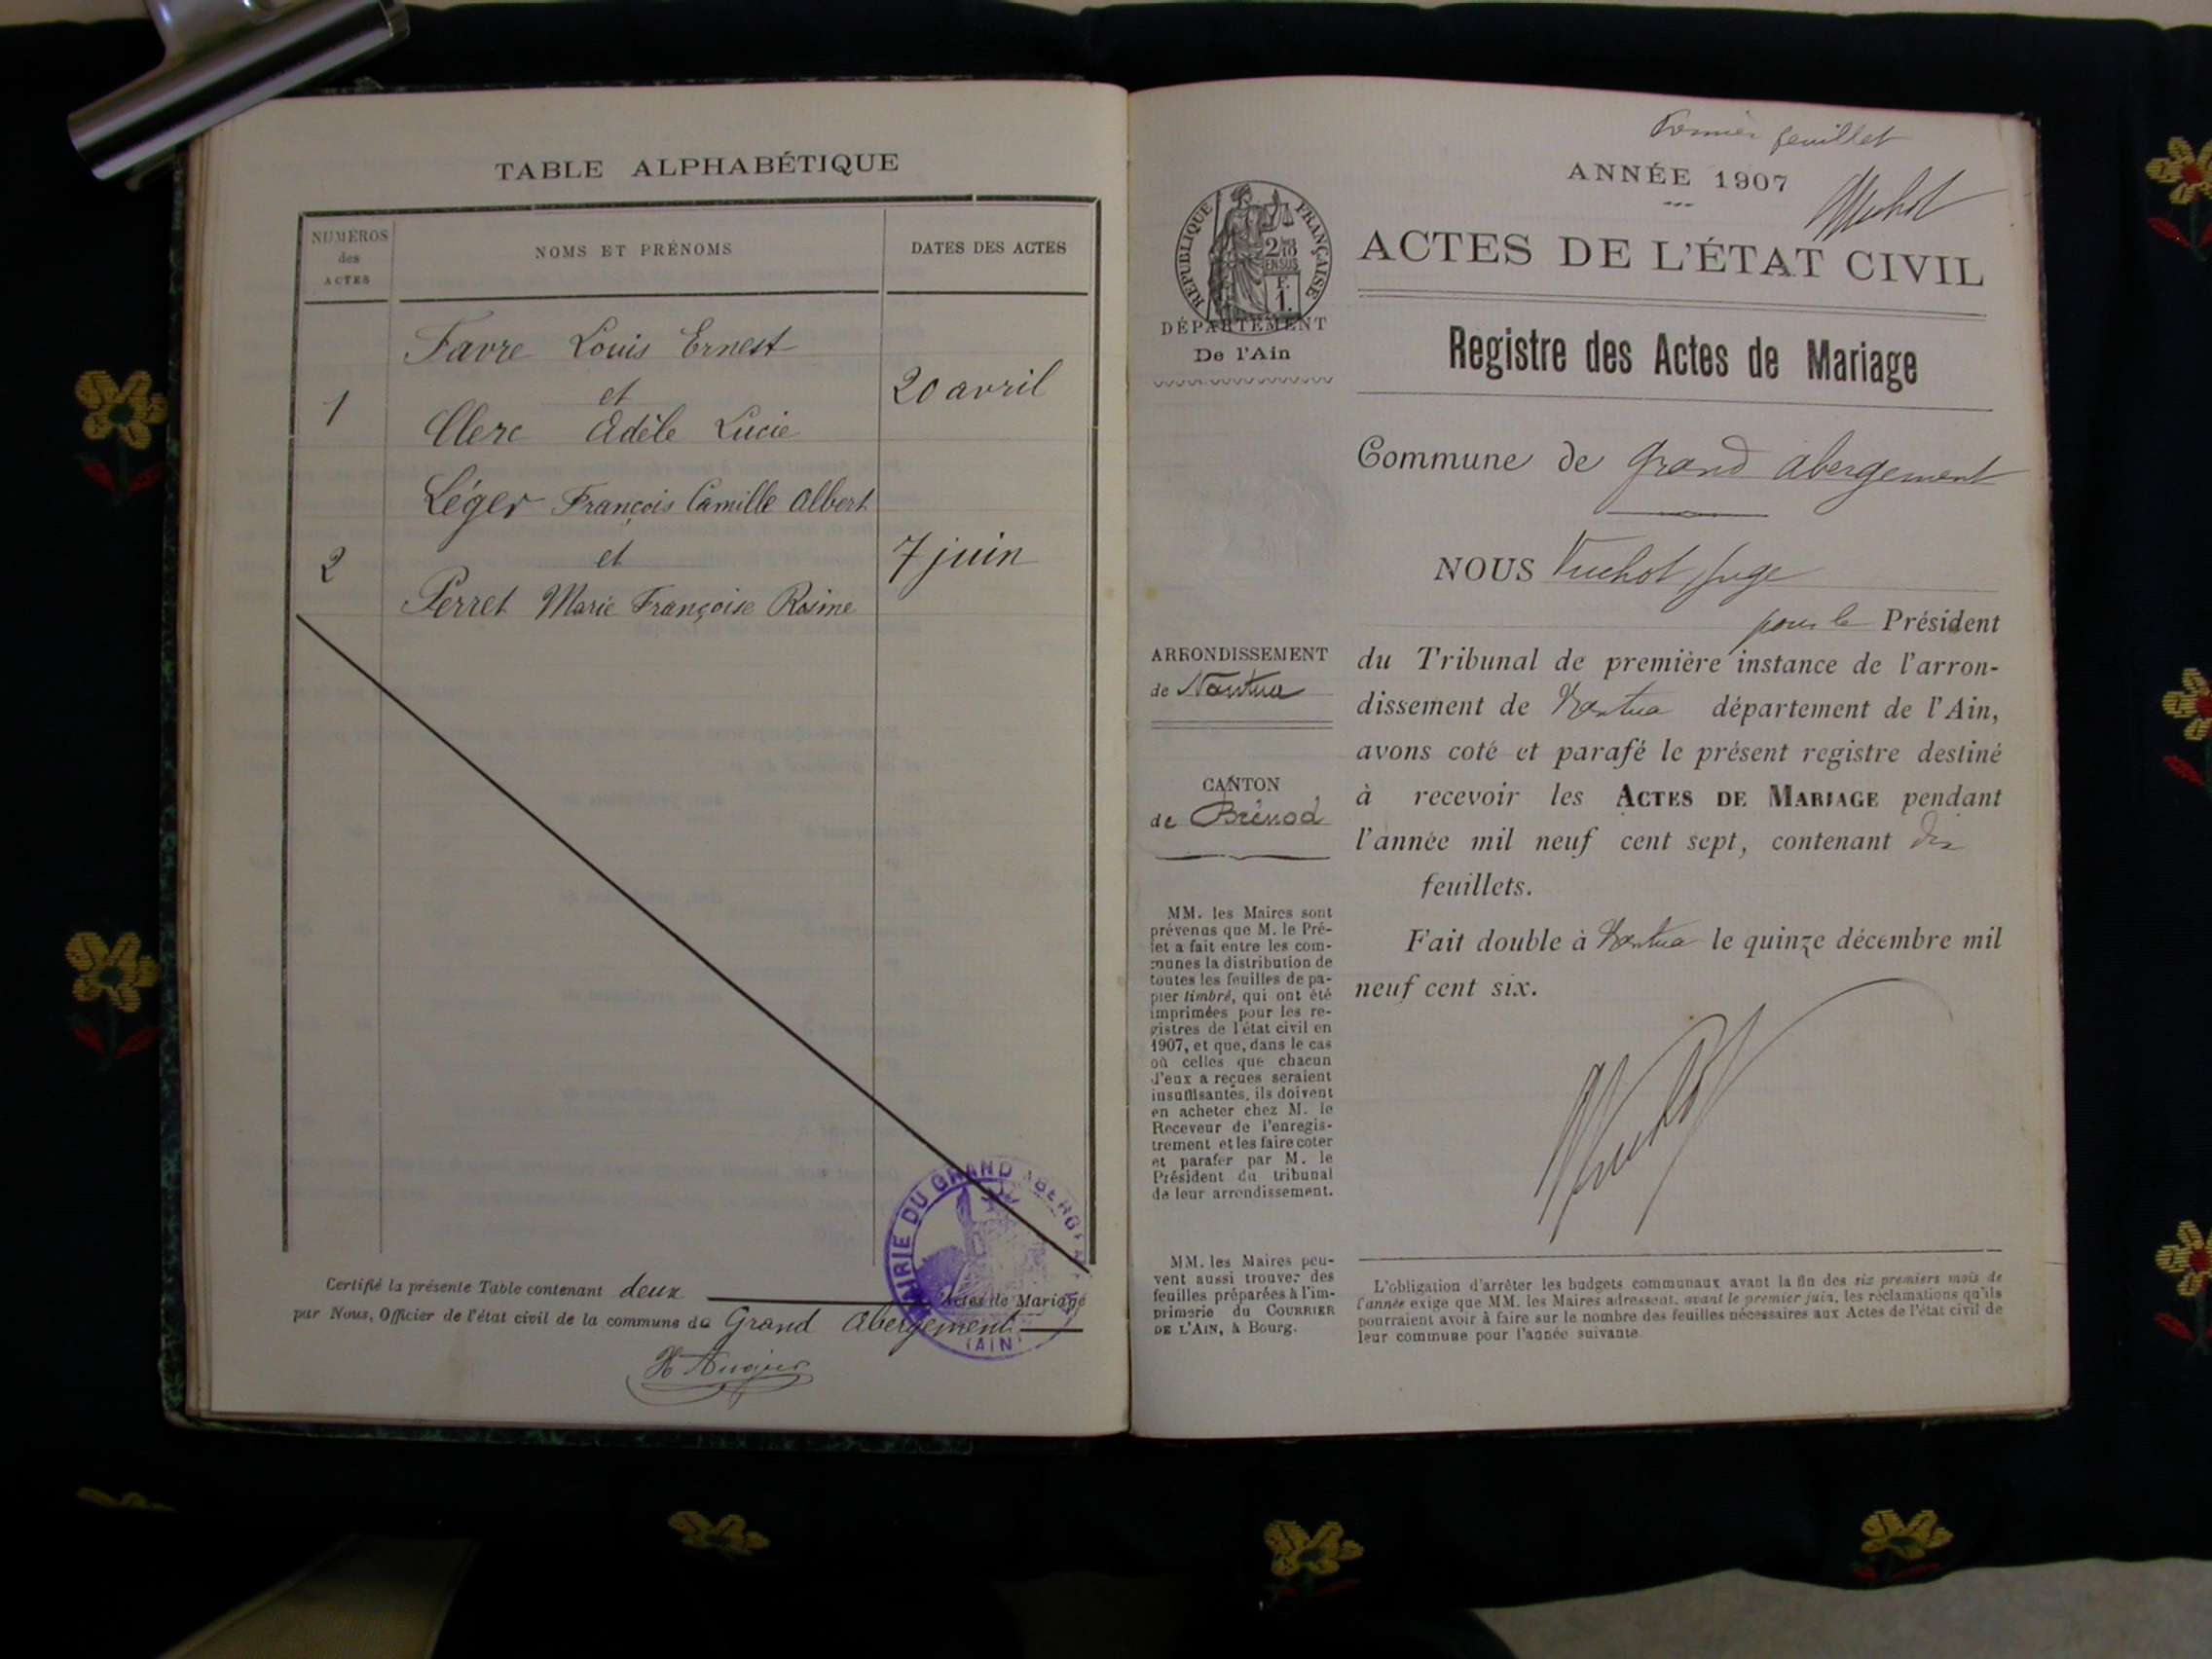 TABLE ALPHABÉTIQUE
NUMÉROS
des
ACTES
NOMS ET PRÉNOMS
DATES DES ACTES
Favre Louis Ernest
1
et
20 avril
Clerc Adèle Lucie
Léger François Camille Albert
2
et
7 juin
Perret Marie Françoise Rosine
Certifié la présente Table contenant deux Actes de Mariage
par Nous, Officier de l'état civil de la commune de Grand Abergement
MAIRIE DU GRAND ABERGEMENT
(AIN)
Premier feuillet
ANNÉE 1907
RÉPUBLIQUE FRANÇAISE
DÉPARTEMENT
De l'Ain
ACTES DE L'ÉTAT CIVIL
Registre des Actes de Mariage
Commune de Grand abergement
NOUS Truchot, juge
pour le Président
du Tribunal de première instance de l'arron-
dissement de Nantua département de l'Ain,
avons coté et parafé le présent registre destiné
à recevoir les ACTES DE MARIAGE pendant
l'année mil neuf cent sept, contenant dix
feuillets.
Fait double à Nantua le quinze décembre mil
neuf cent six.
ARRONDISSEMENT
de Nantua
CANTON
de Brénod
MM. les Maires sont
prévenus que M. le Pré-
fet a fait entre les com-
munes la distribution de
toutes les feuilles de pa-
pier timbré, qui ont été
imprimées pour les re-
gistres de l'état civil en
1907, et que, dans le cas
où celles que chacun
d'eux a reçues seraient
insuffisantes, ils doivent
en acheter chez M. le
Receveur de l'enregis-
trement et les faire coter
et parafer par M. le
Président du tribunal
de leur arrondissement.
MM. les Maires peu-
vent aussi trouver des
feuilles préparées à l'im-
primerie du COURRIER
DE L'AIN, à Bourg.
L'obligation d'arrêter les budgets communaux avant la fin des six premiers mois de
l'année exige que MM. les Maires adressent, avant le premier juin, les réclamations qu'ils
pourraient avoir à faire sur le nombre des feuilles nécessaires aux Actes de l'état civil de
leur commune pour l'année suivante.